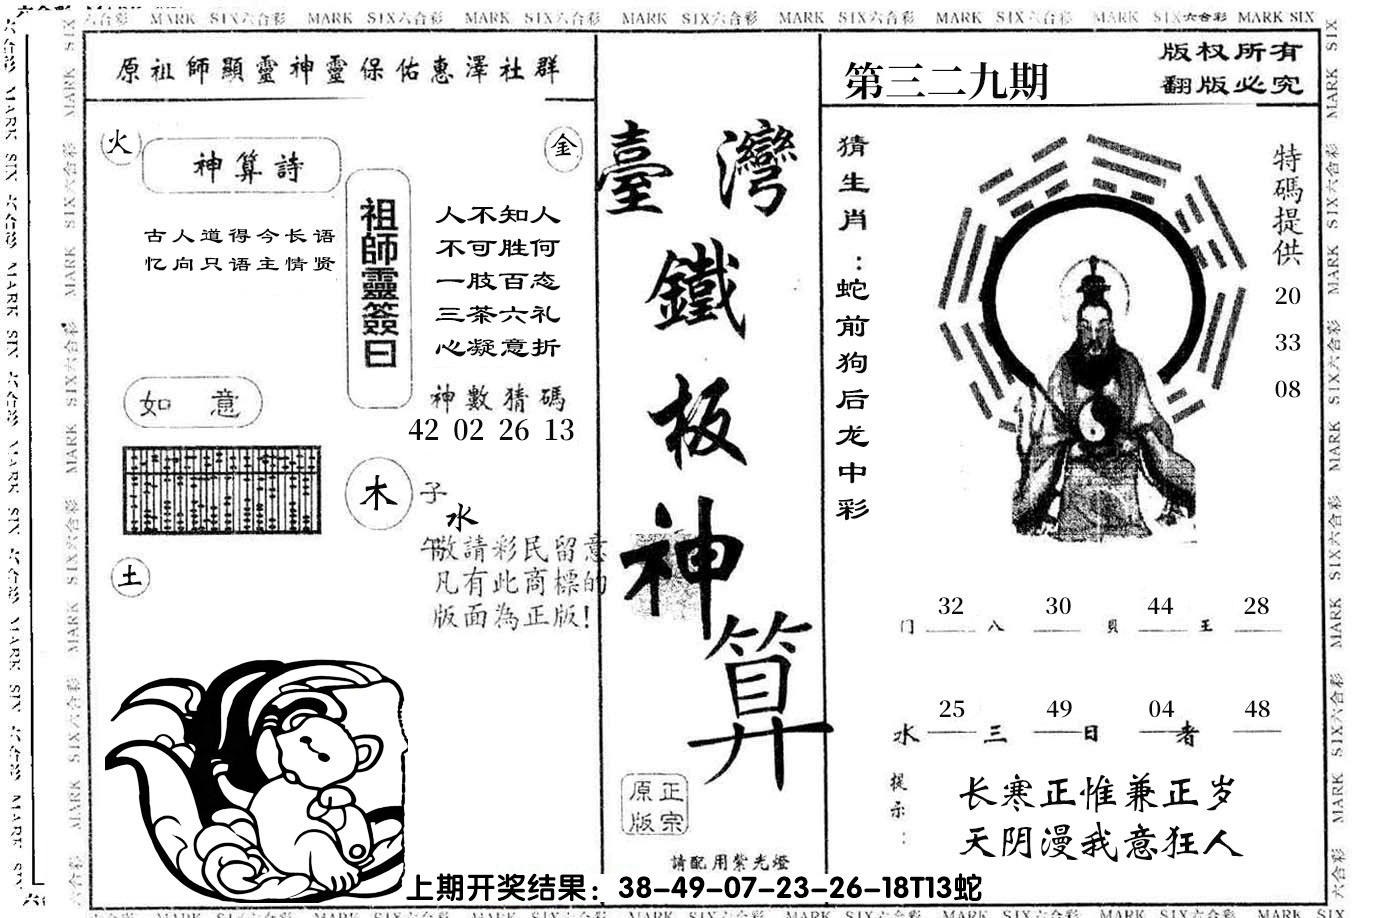 MARK SIX六合彩 MARK SIX六合彩 MARK SIX六合彩 MARK SIX六合彩 MARK SIX六合彩 MARK SIX六合彩 MARK SIX六合彩 MARK SIX
原祖師顯靈神靈保佑惠澤社群
火
金
神算詩
古人道得今长语
忆向只语主情贤
祖師靈簽曰
人不知人
不可胜何
一肢百态
三茶六礼
心凝意折
神數猜碼
42 02 26 13
如意
木
子
水
午
土
敬請彩民留意
凡有此商標的
版面為正版!
臺灣
鐵
板
神
算
原版
正宗
請配用紫光燈
第三二九期
版权所有
翻版必究
猜生肖:蛇前狗后龙中彩
特碼提供
20
33
08
32 30 44 28
门 八 貝 王
25 49 04 48
水 三 日 者
提示:
长寒正惟兼正岁
天阴漫我意狂人
上期开奖结果：38-49-07-23-26-18T13蛇